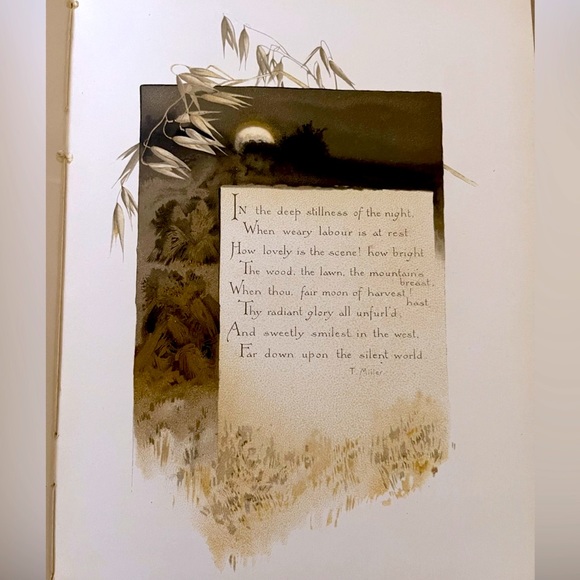 In the deep stillness of the night,
When weary labour is at rest
How lovely is the scene! how bright
The wood, the lawn, the mountain's
breast,
When thou, fair moon of harvest!
hast
Thy radiant glory all unfurl'd,
And sweetly smilest in the west,
Far down upon the silent world.
T. Miller.